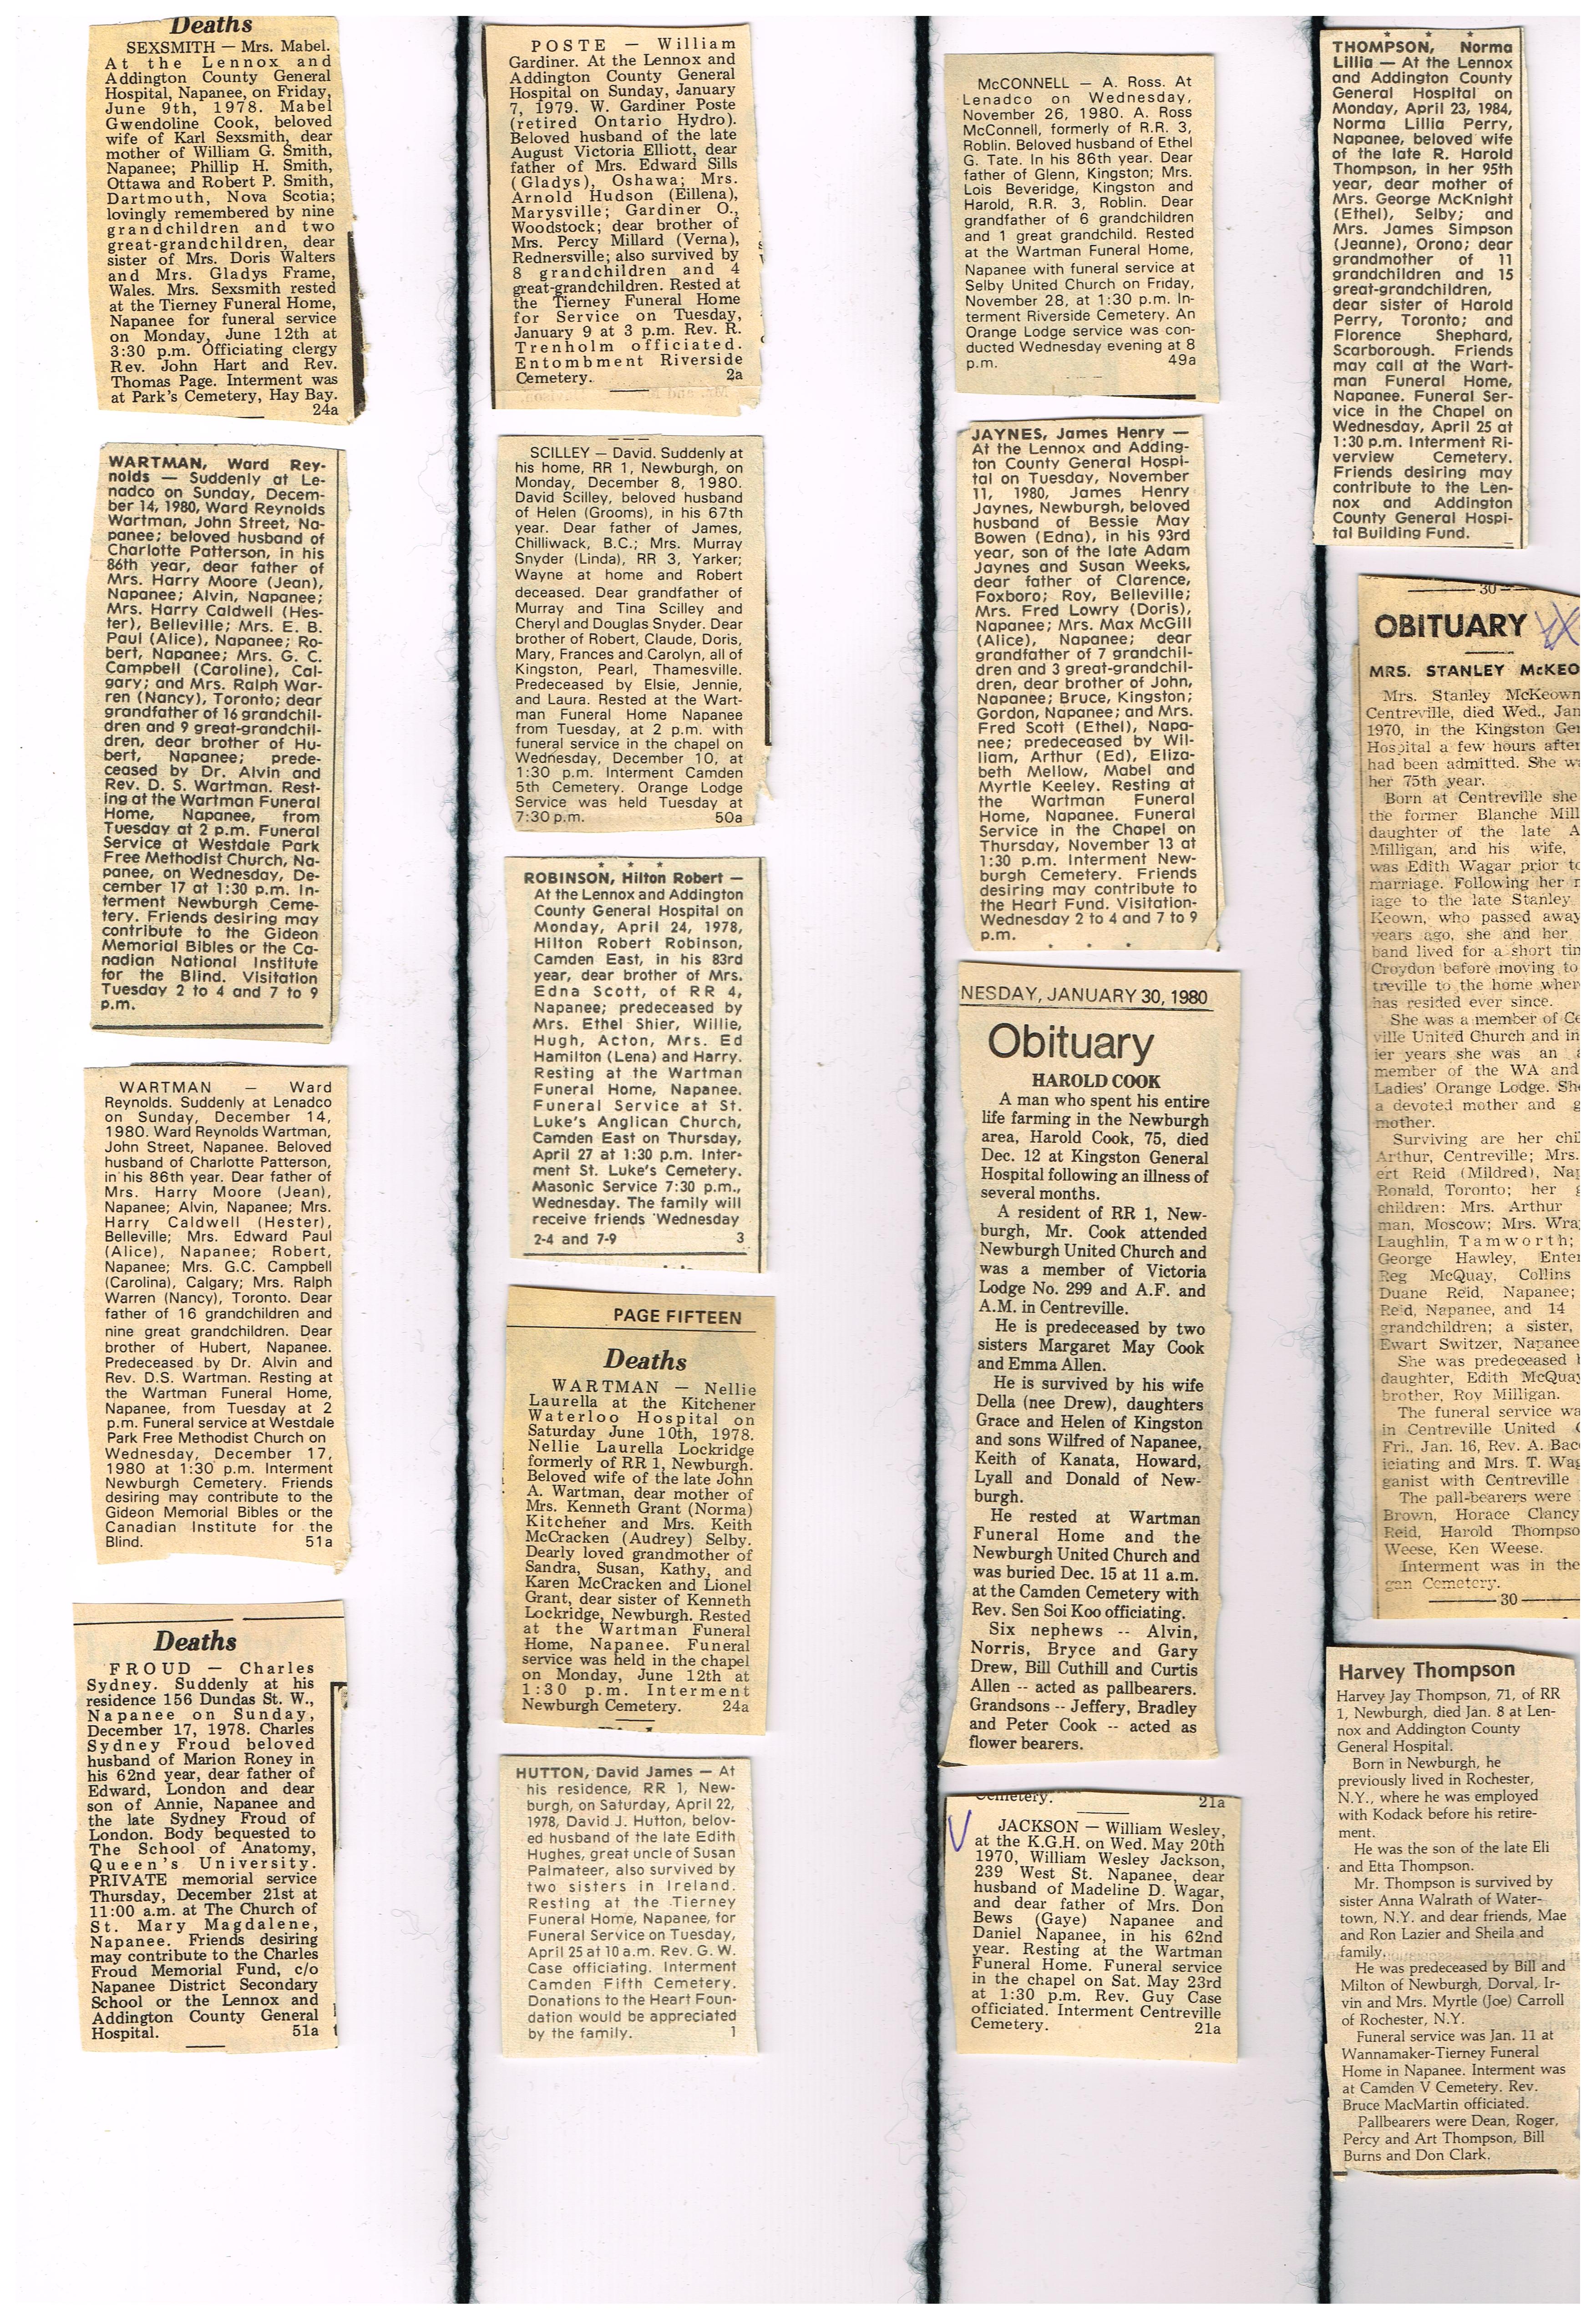 Deaths
SEXSMITH — Mrs. Mabel.
At the Lennox and
Addington County General
Hospital, Napanee, on Friday,
June 9th, 1978. Mabel
Gwendoline Cook, beloved
wife of Karl Sexsmith, dear
mother of William G. Smith,
Napanee; Phillip H. Smith,
Ottawa and Robert P. Smith,
Dartmouth, Nova Scotia;
lovingly remembered by nine
grandchildren and two
great-grandchildren, dear
sister of Mrs. Doris Walters
and Mrs. Gladys Frame,
Wales. Mrs. Sexsmith rested
at the Tierney Funeral Home,
Napanee for funeral service
on Monday, June 12th at
3:30 p.m. Officiating clergy
Rev. John Hart and Rev.
Thomas Page. Interment was
at Park's Cemetery, Hay Bay.
24a
WARTMAN, Ward Rey-
nolds — Suddenly at Le-
nadco on Sunday, Decem-
ber 14, 1980, Ward Reynolds
Wartman, John Street, Na-
panee; beloved husband of
Charlotte Patterson, in his
86th year, dear father of
Mrs. Harry Moore (Jean),
Napanee; Alvin, Napanee;
Mrs. Harry Caldwell (Hes-
ter), Belleville; Mrs. E. B.
Paul (Alice), Napanee; Ro-
bert, Napanee; Mrs. G. C.
Campbell (Caroline), Cal-
gary; and Mrs. Ralph War-
ren (Nancy), Toronto; dear
grandfather of 16 grandchil-
dren and 9 great-grandchil-
dren, dear brother of Hu-
bert, Napanee; prede-
ceased by Dr. Alvin and
Rev. D. S. Wartman. Rest-
ing at the Wartman Funeral
Home, Napanee, from
Tuesday at 2 p.m. Funeral
Service at Westdale Park
Free Methodist Church, Na-
panee, on Wednesday, De-
cember 17 at 1:30 p.m. In-
terment Newburgh Ceme-
tery. Friends desiring may
contribute to the Gideon
Memorial Bibles or the Ca-
nadian National Institute
for the Blind. Visitation
Tuesday 2 to 4 and 7 to 9
p.m.
WARTMAN — Ward
Reynolds. Suddenly at Lenadco
on Sunday, December 14,
1980. Ward Reynolds Wartman,
John Street, Napanee. Beloved
husband of Charlotte Patterson,
in his 86th year. Dear father of
Mrs. Harry Moore (Jean),
Napanee; Alvin, Napanee; Mrs.
Harry Caldwell (Hester),
Belleville; Mrs. Edward Paul
(Alice), Napanee; Robert,
Napanee; Mrs. G.C. Campbell
(Carolina), Calgary; Mrs. Ralph
Warren (Nancy), Toronto. Dear
father of 16 grandchildren and
nine great grandchildren. Dear
brother of Hubert, Napanee.
Predeceased by Dr. Alvin and
Rev. D.S. Wartman. Resting at
the Wartman Funeral Home,
Napanee, from Tuesday at 2
p.m. Funeral service at Westdale
Park Free Methodist Church on
Wednesday, December 17,
1980 at 1:30 p.m. Interment
Newburgh Cemetery. Friends
desiring may contribute to the
Gideon Memorial Bibles or the
Canadian Institute for the
Blind. 51a
Deaths
FROUD — Charles
Sydney. Suddenly at his
residence 156 Dundas St. W.,
Napanee on Sunday,
December 17, 1978. Charles
Sydney Froud beloved
husband of Marion Roney in
his 62nd year, dear father of
Edward, London and dear
son of Annie, Napanee and
the late Sydney Froud of
London. Body bequested to
The School of Anatomy,
Queen's University.
PRIVATE memorial service
Thursday, December 21st at
11:00 a.m. at The Church of
St. Mary Magdalene,
Napanee. Friends desiring
may contribute to the Charles
Froud Memorial Fund, c/o
Napanee District Secondary
School or the Lennox and
Addington County General
Hospital. 51a
POSTE — William
Gardiner. At the Lennox and
Addington County General
Hospital on Sunday, January
7, 1979. W. Gardiner Poste
(retired Ontario Hydro).
Beloved husband of the late
August Victoria Elliott, dear
father of Mrs. Edward Sills
(Gladys), Oshawa; Mrs.
Arnold Hudson (Eillena),
Marysville; Gardiner O.,
Woodstock; dear brother of
Mrs. Percy Millard (Verna),
Rednersville; also survived by
8 grandchildren and 4
great-grandchildren. Rested at
the Tierney Funeral Home
for Service on Tuesday,
January 9 at 3 p.m. Rev. R.
Trenholm officiated.
Entombment Riverside
Cemetery. 2a
SCILLEY — David. Suddenly at
his home, RR 1, Newburgh, on
Monday, December 8, 1980.
David Scilley, beloved husband
of Helen (Grooms), in his 67th
year. Dear father of James,
Chilliwack, B.C.; Mrs. Murray
Snyder (Linda), RR 3, Yarker;
Wayne at home and Robert
deceased. Dear grandfather of
Murray and Tina Scilley and
Cheryl and Douglas Snyder. Dear
brother of Robert, Claude, Doris,
Mary, Frances and Carolyn, all of
Kingston, Pearl, Thamesville.
Predeceased by Elsie, Jennie,
and Laura. Rested at the Wart-
man Funeral Home Napanee
from Tuesday, at 2 p.m. with
funeral service in the chapel on
Wednesday, December 10, at
1:30 p.m. Interment Camden
5th Cemetery. Orange Lodge
Service was held Tuesday at
7:30 p.m. 50a
* * *
ROBINSON, Hilton Robert —
At the Lennox and Addington
County General Hospital on
Monday, April 24, 1978,
Hilton Robert Robinson,
Camden East, in his 83rd
year, dear brother of Mrs.
Edna Scott, of RR 4,
Napanee; predeceased by
Mrs. Ethel Shier, Willie,
Hugh, Acton, Mrs. Ed
Hamilton (Lena) and Harry.
Resting at the Wartman
Funeral Home, Napanee.
Funeral Service at St.
Luke's Anglican Church,
Camden East on Thursday,
April 27 at 1:30 p.m. Inter-
ment St. Luke's Cemetery.
Masonic Service 7:30 p.m.,
Wednesday. The family will
receive friends Wednesday
2-4 and 7-9 3
PAGE FIFTEEN
Deaths
WARTMAN — Nellie
Laurella at the Kitchener
Waterloo Hospital on
Saturday June 10th, 1978.
Nellie Laurella Lockridge
formerly of RR 1, Newburgh.
Beloved wife of the late John
A. Wartman, dear mother of
Mrs. Kenneth Grant (Norma)
Kitchener and Mrs. Keith
McCracken (Audrey) Selby.
Dearly loved grandmother of
Sandra, Susan, Kathy, and
Karen McCracken and Lionel
Grant, dear sister of Kenneth
Lockridge, Newburgh. Rested
at the Wartman Funeral
Home, Napanee. Funeral
service was held in the chapel
on Monday, June 12th at
1:30 p.m. Interment
Newburgh Cemetery. 24a
HUTTON, David James — At
his residence, RR 1, New-
burgh, on Saturday, April 22,
1978, David J. Hutton, belov-
ed husband of the late Edith
Hughes, great uncle of Susan
Palmateer, also survived by
two sisters in Ireland.
Resting at the Tierney
Funeral Home, Napanee, for
Funeral Service on Tuesday,
April 25 at 10 a.m. Rev. G. W.
Case officiating. Interment
Camden Fifth Cemetery.
Donations to the Heart Foun-
dation would be appreciated
by the family. 1
McCONNELL — A. Ross. At
Lenadco on Wednesday,
November 26, 1980. A. Ross
McConnell, formerly of R.R. 3,
Roblin. Beloved husband of Ethel
G. Tate. In his 86th year. Dear
father of Glenn, Kingston; Mrs.
Lois Beveridge, Kingston and
Harold, R.R. 3, Roblin. Dear
grandfather of 6 grandchildren
and 1 great grandchild. Rested
at the Wartman Funeral Home,
Napanee with funeral service at
Selby United Church on Friday,
November 28, at 1:30 p.m. In-
terment Riverside Cemetery. An
Orange Lodge service was con-
ducted Wednesday evening at 8
p.m. 49a
JAYNES, James Henry —
At the Lennox and Adding-
ton County General Hospi-
tal on Tuesday, November
11, 1980, James Henry
Jaynes, Newburgh, beloved
husband of Bessie May
Bowen (Edna), in his 93rd
year, son of the late Adam
Jaynes and Susan Weeks,
dear father of Clarence,
Foxboro; Roy, Belleville;
Mrs. Fred Lowry (Doris),
Napanee; Mrs. Max McGill
(Alice), Napanee; dear
grandfather of 7 grandchil-
dren and 3 great-grandchil-
dren, dear brother of John,
Napanee; Bruce, Kingston;
Gordon, Napanee; and Mrs.
Fred Scott (Ethel), Napa-
nee; predeceased by Wil-
liam, Arthur (Ed), Eliza-
beth Mellow, Mabel and
Myrtle Keeley. Resting at
the Wartman Funeral
Home, Napanee. Funeral
Service in the Chapel on
Thursday, November 13 at
1:30 p.m. Interment New-
burgh Cemetery. Friends
desiring may contribute to
the Heart Fund. Visitation-
Wednesday 2 to 4 and 7 to 9
p.m.
NESDAY, JANUARY 30, 1980
Obituary
HAROLD COOK
A man who spent his entire
life farming in the Newburgh
area, Harold Cook, 75, died
Dec. 12 at Kingston General
Hospital following an illness of
several months.
A resident of RR 1, New-
burgh, Mr. Cook attended
Newburgh United Church and
was a member of Victoria
Lodge No. 299 and A.F. and
A.M. in Centreville.
He is predeceased by two
sisters Margaret May Cook
and Emma Allen.
He is survived by his wife
Della (nee Drew), daughters
Grace and Helen of Kingston
and sons Wilfred of Napanee,
Keith of Kanata, Howard,
Lyall and Donald of New-
burgh.
He rested at Wartman
Funeral Home and the
Newburgh United Church and
was buried Dec. 15 at 11 a.m.
at the Camden Cemetery with
Rev. Sen Soi Koo officiating.
Six nephews -- Alvin,
Norris, Bryce and Gary
Drew, Bill Cuthill and Curtis
Allen -- acted as pallbearers.
Grandsons -- Jeffery, Bradley
and Peter Cook -- acted as
flower bearers.
Cemetery. 21a
JACKSON — William Wesley,
at the K.G.H. on Wed. May 20th
1970, William Wesley Jackson,
239 West St. Napanee, dear
husband of Madeline D. Wagar,
and dear father of Mrs. Don
Bews (Gaye) Napanee and
Daniel Napanee, in his 62nd
year. Resting at the Wartman
Funeral Home. Funeral service
in the chapel on Sat. May 23rd
at 1:30 p.m. Rev. Guy Case
officiated. Interment Centreville
Cemetery. 21a
* * *
THOMPSON, Norma
Lillia — At the Lennox
and Addington County
General Hospital on
Monday, April 23, 1984,
Norma Lillia Perry,
Napanee, beloved wife
of the late R. Harold
Thompson, in her 95th
year, dear mother of
Mrs. George McKnight
(Ethel), Selby; and
Mrs. James Simpson
(Jeanne), Orono; dear
grandmother of 11
grandchildren and 15
great-grandchildren,
dear sister of Harold
Perry, Toronto; and
Florence Shephard,
Scarborough. Friends
may call at the Wart-
man Funeral Home,
Napanee. Funeral Ser-
vice in the Chapel on
Wednesday, April 25 at
1:30 p.m. Interment Ri-
verview Cemetery.
Friends desiring may
contribute to the Len-
nox and Addington
County General Hospi-
tal Building Fund.
30
OBITUARY
MRS. STANLEY McKEO
Mrs. Stanley McKeown
Centreville, died Wed., Jan
1970, in the Kingston Gen
Hospital a few hours after
had been admitted. She wa
her 75th year.
Born at Centreville she
the former Blanche Mill
daughter of the late A
Milligan, and his wife,
was Edith Wagar prior to
marriage. Following her m
iage to the late Stanley
Keown, who passed away
years ago, she and her
band lived for a short tim
Croydon before moving to
treville to the home wher
has resided ever since.
She was a member of Ce
ville United Church and in
ier years she was an a
member of the WA and
Ladies' Orange Lodge. She
a devoted mother and g
mother.
Surviving are her chil
Arthur, Centreville; Mrs.
ert Reid (Mildred), Nap
Ronald, Toronto; her g
children: Mrs. Arthur
man, Moscow; Mrs. Wra
Laughlin, Tamworth;
George Hawley, Enter
Reg McQuay, Collins
Duane Reid, Napanee;
Reid, Napanee, and 14
grandchildren; a sister,
Ewart Switzer, Napanee
She was predeceased b
daughter, Edith McQuay
brother, Roy Milligan.
The funeral service wa
in Centreville United C
Fri., Jan. 16, Rev. A. Baco
iciating and Mrs. T. Wag
ganist with Centreville
The pall-bearers were
Brown, Horace Clancy
Reid, Harold Thompso
Weese, Ken Weese.
Interment was in the
gan Cemetery.
30
Harvey Thompson
Harvey Jay Thompson, 71, of RR
1, Newburgh, died Jan. 8 at Len-
nox and Addington County
General Hospital.
Born in Newburgh, he
previously lived in Rochester,
N.Y., where he was employed
with Kodack before his retire-
ment.
He was the son of the late Eli
and Etta Thompson.
Mr. Thompson is survived by
sister Anna Walrath of Water-
town, N.Y. and dear friends, Mae
and Ron Lazier and Sheila and
family.
He was predeceased by Bill and
Milton of Newburgh, Dorval, Ir-
vin and Mrs. Myrtle (Joe) Carroll
of Rochester, N.Y.
Funeral service was Jan. 11 at
Wannamaker-Tierney Funeral
Home in Napanee. Interment was
at Camden V Cemetery. Rev.
Bruce MacMartin officiated.
Pallbearers were Dean, Roger,
Percy and Art Thompson, Bill
Burns and Don Clark.